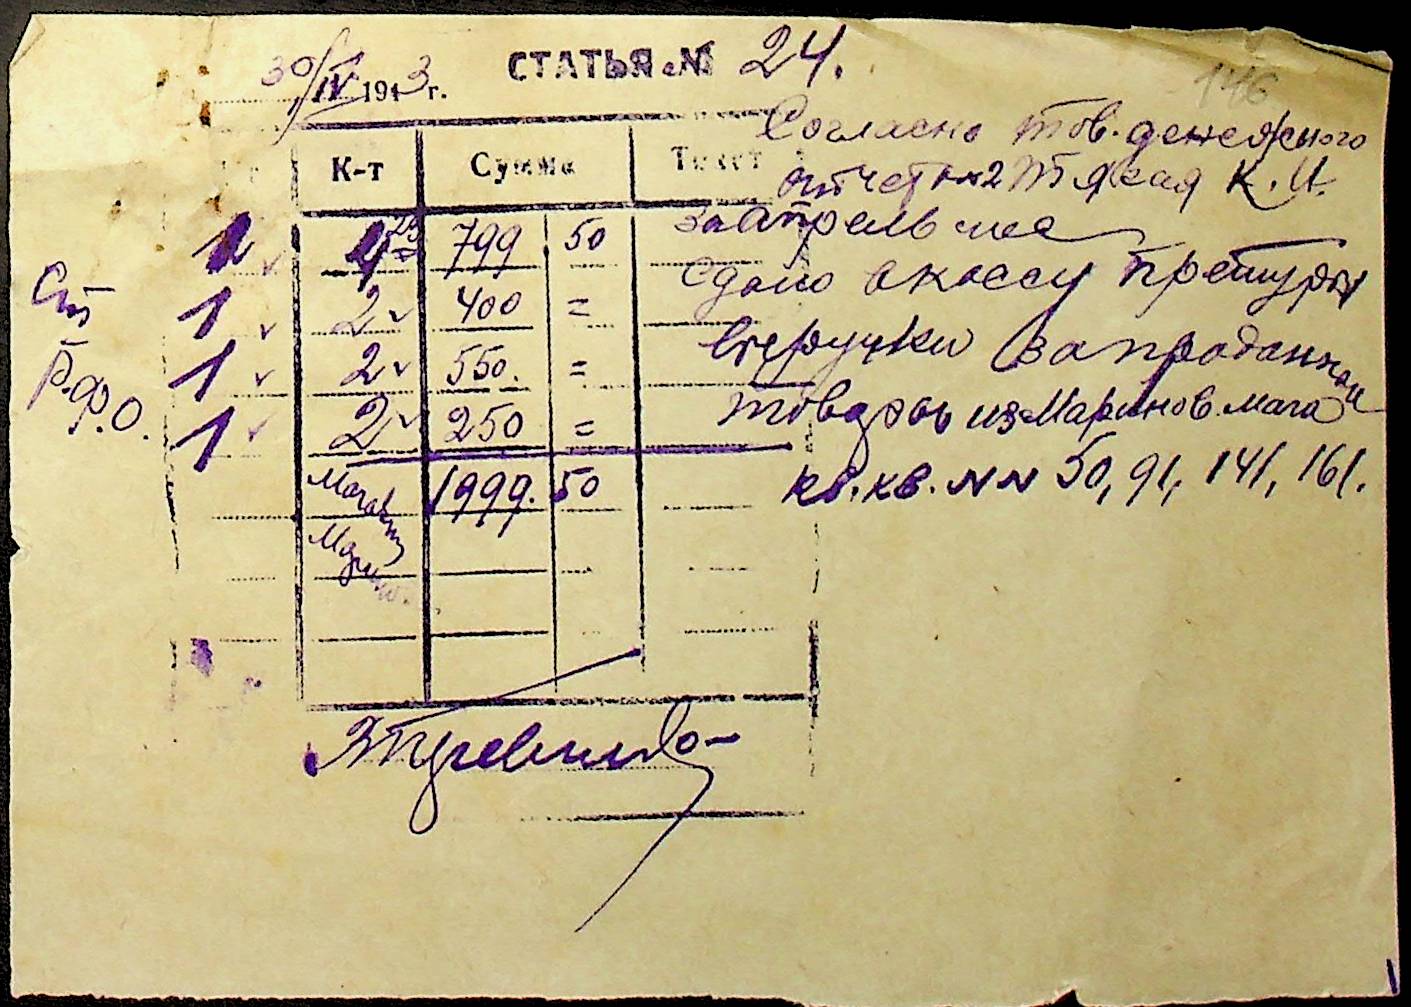 30/IV 1943 г.
СТАТЬЯ № 24.
146
К-т Сумма Текст
1 799 50
1 2 400 =
1 2 550. =
1 2 250 =
1999. 50
Р.Ф.О.
Согласно тов. денежного
отчета №2 Тяская К.И.
за апрель м-с
сдано в кассу претуры
выручки за проданные
товары из Маринов. мага
кв. кв. NN 50, 91, 141, 161.